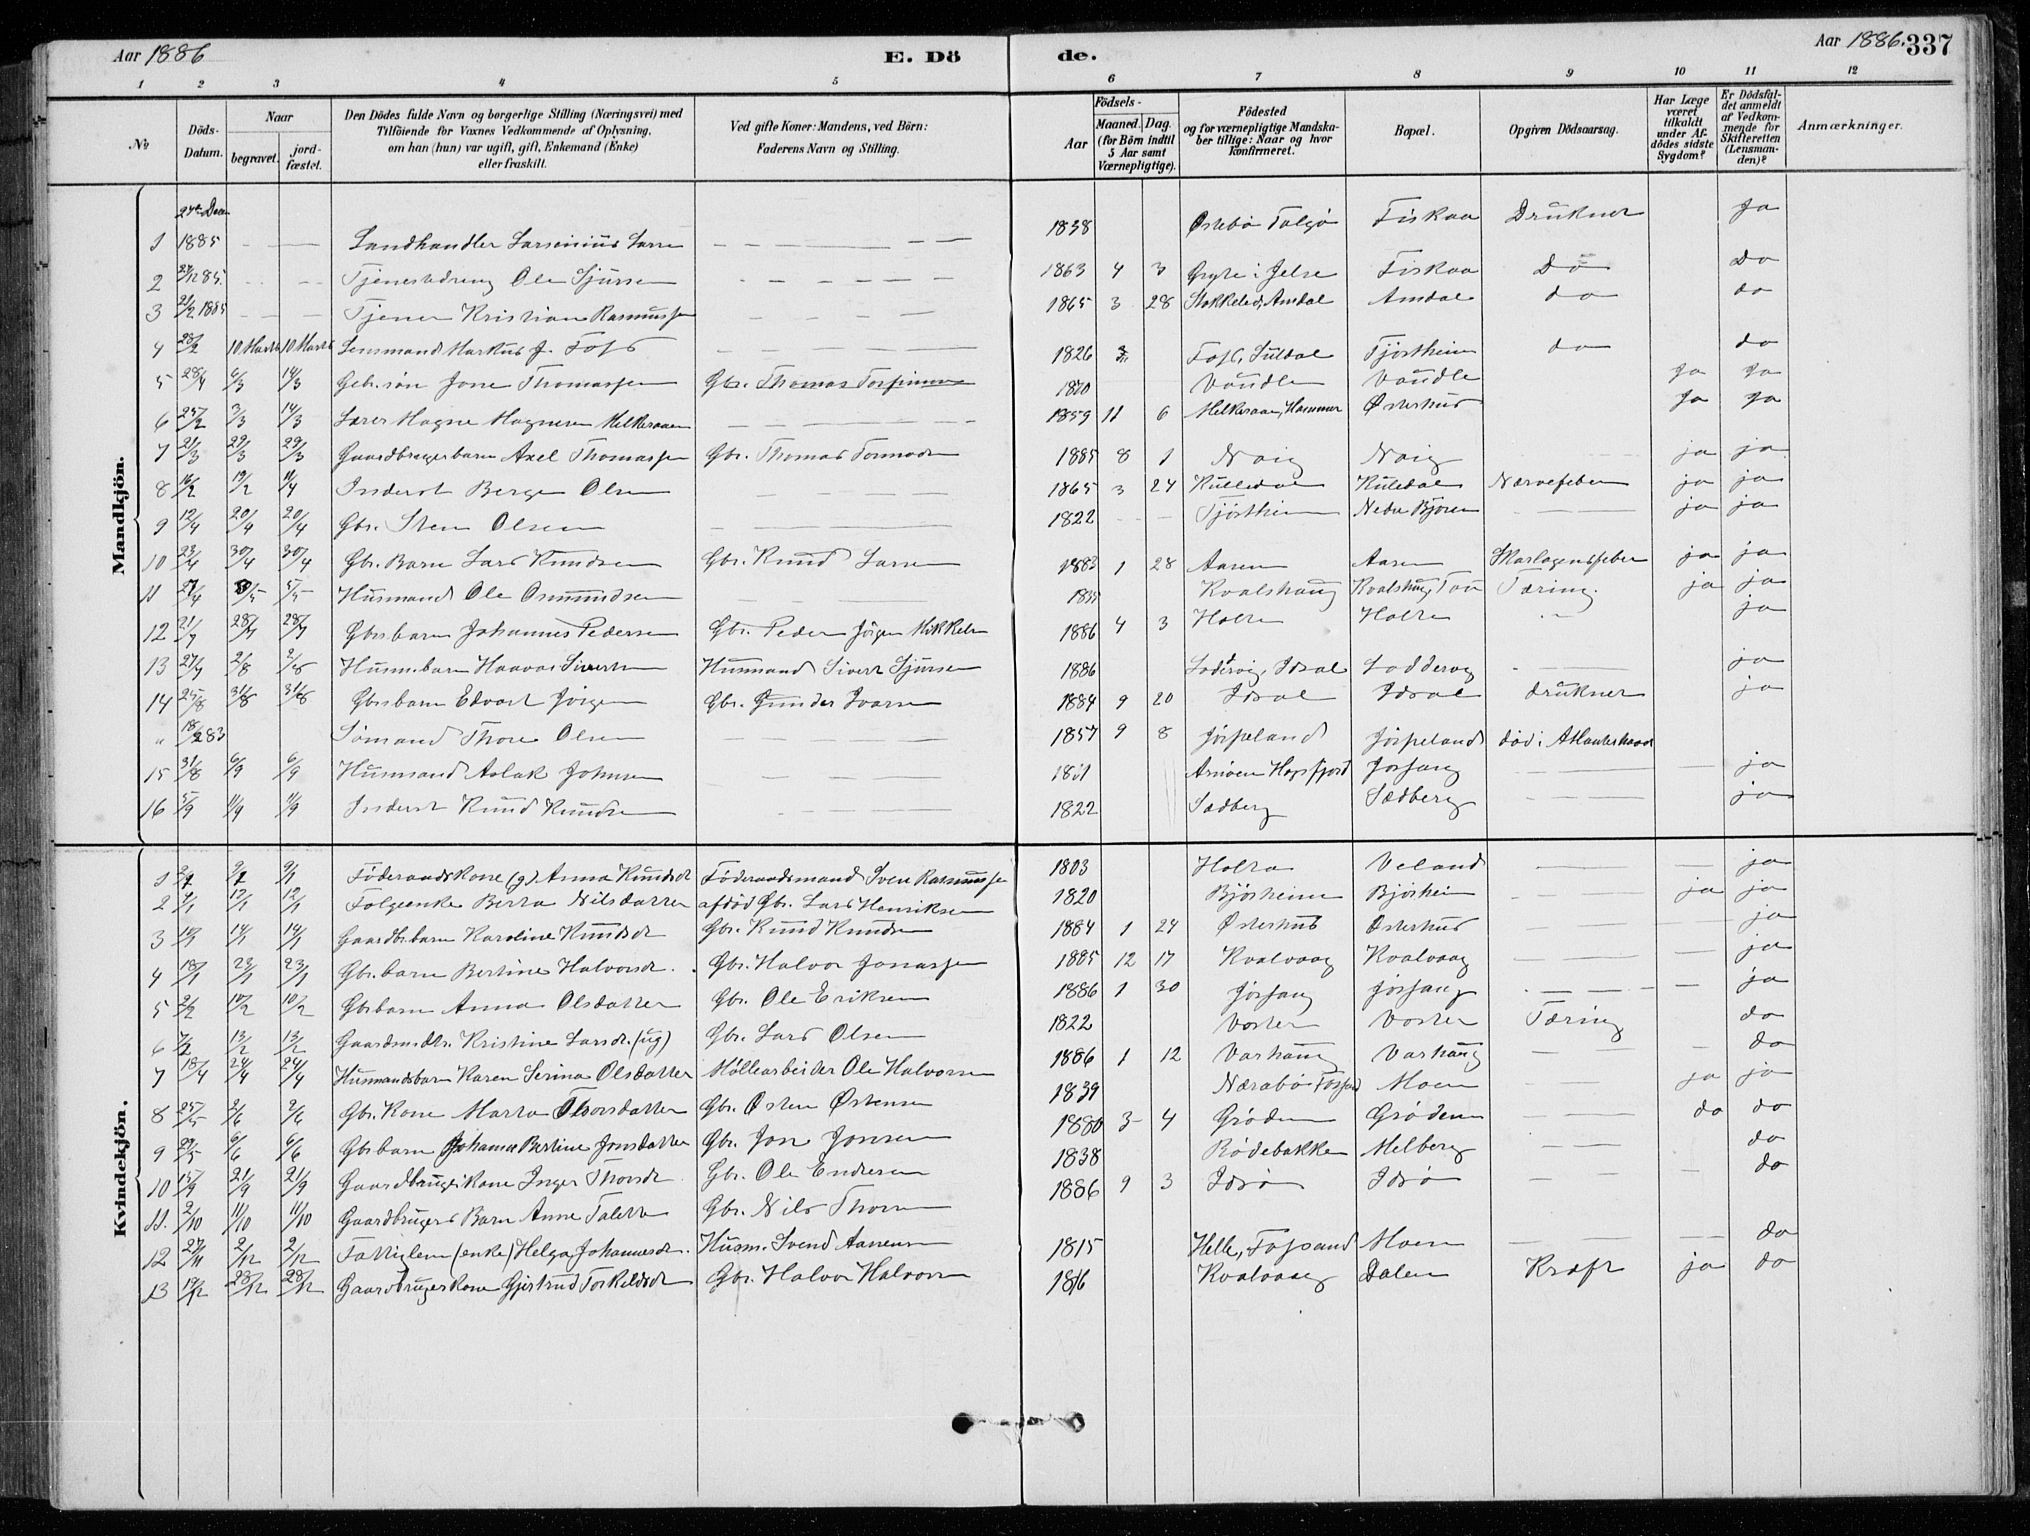 Aar 1886 E. Dö de. Aar 1886. 337
1 2 3 4 5 6 7 8 9 10 11 12
No Döds-Datum. Naar begravet. jord-fæstet. Den Dödes fulde Navn og borgerlige Stilling (Næringsvei) med Tilföiende for Voxnes Vedkommende af Oplysning, om han (hun) var ugift, gift, Enkemand (Enke) eller fraskilt. Ved gifte Koner: Mandens, ved Börn: Faderens Navn og Stilling. Födsels- Aar Maaned. Dag. (for Börn indtil 5 Aar samt Værnepligtige). Födested og for værnepligtige Mandskaber tillige: Naar og hvor Konfirmeret. Bopæl. Opgiven Dödsaarsag. Har Læge været tilkaldt under Afdödes sidste Sygdom? Er Dödsfaldet anmeldt af Vedkommende for Skifteretten (Lensmanden)? Anmærkninger.
Mandkjön.
1 24de Decm 1885 Landhandler Larsinius Larsen 1838 Østebø Talgø Fiskaa Drukner Ja
2 24/12 85. Tjenestedreng Ole Sjursen 1863 4 3 Gryte i Jelse Fiskaa Do Do
3 21/2 1885 Tjener Kristian Rasmussen 1865 3 28 Stokkeled, Amdal Amdal do do
4 28/2 10 Marts 10 Marts Lensmand Markus J. Foss 1826 Foss, Suldal Tjøstheim do do
5 28/4 6/3 14/3 Gbr. søn Jone Thomassen Gbr. Thomas Torfinnsen 1870 Vaudle Vaudle Ja Ja
6 25/2 3/3 14/3 Lærer Magne Magnesen Melkeraaen 1859 11 6 Melkeraaen, Hammer Østerhus Ja Ja
7 21/3 29/3 29/3 Gaardbrugerbarn Axel Thomassen Gbr. Thomas Tormodsen 1885 8 1 Naig Naig ja ja
8 16/2 19/2 11/4 Inderst Berge Olsen 1865 3 24 Kulledal Kuledal Nervefeber ja ja
9 12/4 20/4 20/4 Gbr. Sten Olsen 1822 Tjøstheim Nedre Bjøren ja ja
10 23/4 30/4 30/4 Gbr. Barn Lars Knudsen Gbr. Knud Larsen 1883 1 28 Aasen Aasen Skarlagensfeber ja ja
11 27/4 5/5 5/5 Husmand Ole Osmundsen Kvalshaug Kvalshaug, Tau Tæring. ja ja
12 21/7 28/7 28/7 Gbrsbarn Johannes Pedersen Gbr. Peder Jörgen Mikkelsen 1886 4 3 Holta Holta ja
13 27/7 2/8 2/8 Husm.barn Haavar Sivertsen Husmand Sivert Sjursen 1886 Lodervig, Idsal Loddervig ja
14 25/8 31/8 31/8 Gbrsbarn Edvart Jörgen Gbr. Gunder Ivarsen 1884 9 20 Idsal Idsal drukner ja
" 18/2 83 Sømand Thore Olsen 1857 9 8 Jørpeland Jørpeland død i Atlanterhavet
15 31/8 6/9 6/9 Husmand Aslak Johnsen Arnøen Høgsfjord Jøssang ja
16 5/9 11/9 11/9 Inderst Knud Knudsen 1822 Sedberg Sedberg ja
Kvindekjön.
1 2/1 9/1 9/1 Föderaadskone (g) Anna Knudsdt Föderaadsmand Sven Rasmussen 1803 Holta Veland ja
2 4/1 12/1 12/1 Folgeenke Berta Nilsdatter afdöd Gbr. Lars Henriksen 1820 Bjørheim Bjørheim ja ja
3 10/1 14/1 14/1 Gaardbr.barn Karoline Knudsdt Gbr. Knud Knudsen 1884 1 24 Østerhus Østerhus ja
4 18/1 23/1 23/1 Gbr. barn Bertine Halvorsdt. Gbr. Halvor Jonassen 1885 12 17 Kvalvaag Kvalvaag ja
5 2/2 10/2 10/2 Gbrsbarn Anna Olsdatter Gbr. Ole Eriksen 1886 1 30 Jøssang Jøssang ja
6 7/2 13/2 13/2 Gaardmdtr. Kristine Larsdt. (ug) Gbr. Lars Olsen 1822 Voster Voster Tæring do
7 18/4 24/4 24/4 Husmandsbarn Karen Serina Olsdatter Møllearbeider Ole Halvorsen 1886 1 12 Varhaug Varhaug do
8 25/5 2/6 2/6 Gbr. Kone Marta Thorsdatter Gbr. Østen Østensen 1839 Nærabø Fossan Moen ja ja
9 29/5 6/6 6/6 Gbrsbarn Johanna Bertine Jonsdatter Gbr. Jon Jonsen 1880 3 4 Grøden Grøden do do
10 15/9 21/9 21/9 Gaardbrugerkone Inger Thorsdt. Gbr. Ole Endresen 1838 Rødebakken Melberg do
11. 2/10 11/10 11/10 Gaardbrugers Barn Anne Taletta Gbr. Nils Thorsen 1886 9 3 Idsø Idsø do
12 27/11 2/12 2/12 Fattiglem (enke) Helga Johannesdt. Husm. Svend Aanensen 1815 Helle, Fossand Moen do
13 19/12 28/12 28/12 Gaardbrugerkone Gjertrud Torkeldsdt Gbr. Halvor Halvorsen 1816 Kvalvaag Dalen Kræft ja do